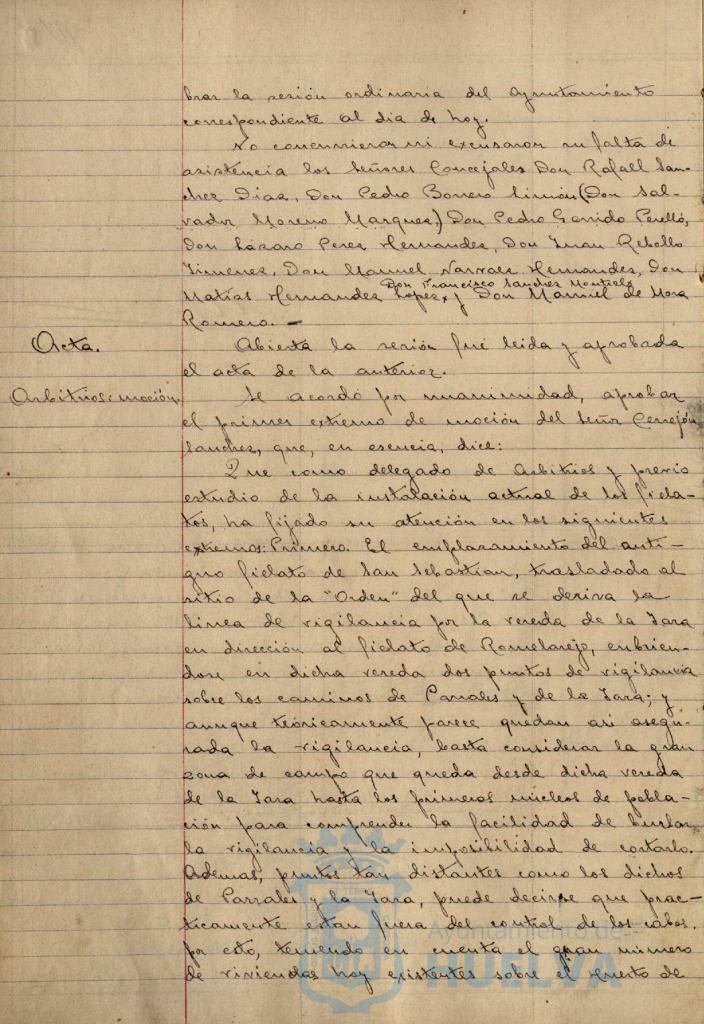 brar la sesión ordinaria del Ayuntamiento
correspondiente al dia de hoy.
No concurrieron ni excusaron su falta de
asistencia los Señores Concejales Don Rafael San-
chez Diaz, Don Pedro Borrero Limón (Don Sal-
vador Moreno Marquez,) Don Pedro Garrido Perelló,
Don Lázaro Perez Hernandez, Don Juan Rebollo
Jimenez, Don Manuel Narvaez Hernandez, Don
Don Francisco Sanchez Montiel
Matías Hernandez Lopez, y Don Manuel de Mora
Romero. —
Acta.
Abierta la sesión fué leida y aprobada
el acta de la anterior.
Arbitrios: moción.
Se acordó por unanimidad, aprobar
el primer extremo de moción del Señor Cerrejón
Sanchez, que, en esencia, dice:
Que como delegado de Arbitrios y previo
estudio de la instalación actual de los fiela-
tos, ha fijado su atención en los siguientes
extremos: Primero. El emplazamiento del anti-
guo fielato de San Sebastian, trasladado al
sitio de la "Orden" del que se deriva la
linea de vigilancia por la vereda de la Jara
en dirección al fielato de Romeralejo, cubrien-
dose en dicha vereda dos puntos de vigilancia
sobre los caminos de Parrales y de la Jara; y
aunque teóricamente parece quedan asi asegu-
rada la vigilancia, basta considerar la gran
zona de campo que queda desde dicha vereda
de la Jara hasta los primeros núcleos de pobla-
ción para comprender la facilidad de burlar
la vigilancia y la imposibilidad de cortarlo.
Ademas, puntos tan distantes como los dichos
de Parrales y la Jara, puede decirse que prac-
ticamente estan fuera del control de los cabos.
por esto, teniendo en cuenta el gran número
de viviendas hoy existentes sobre el Huerto de
Ayuntamiento de
HUELVA